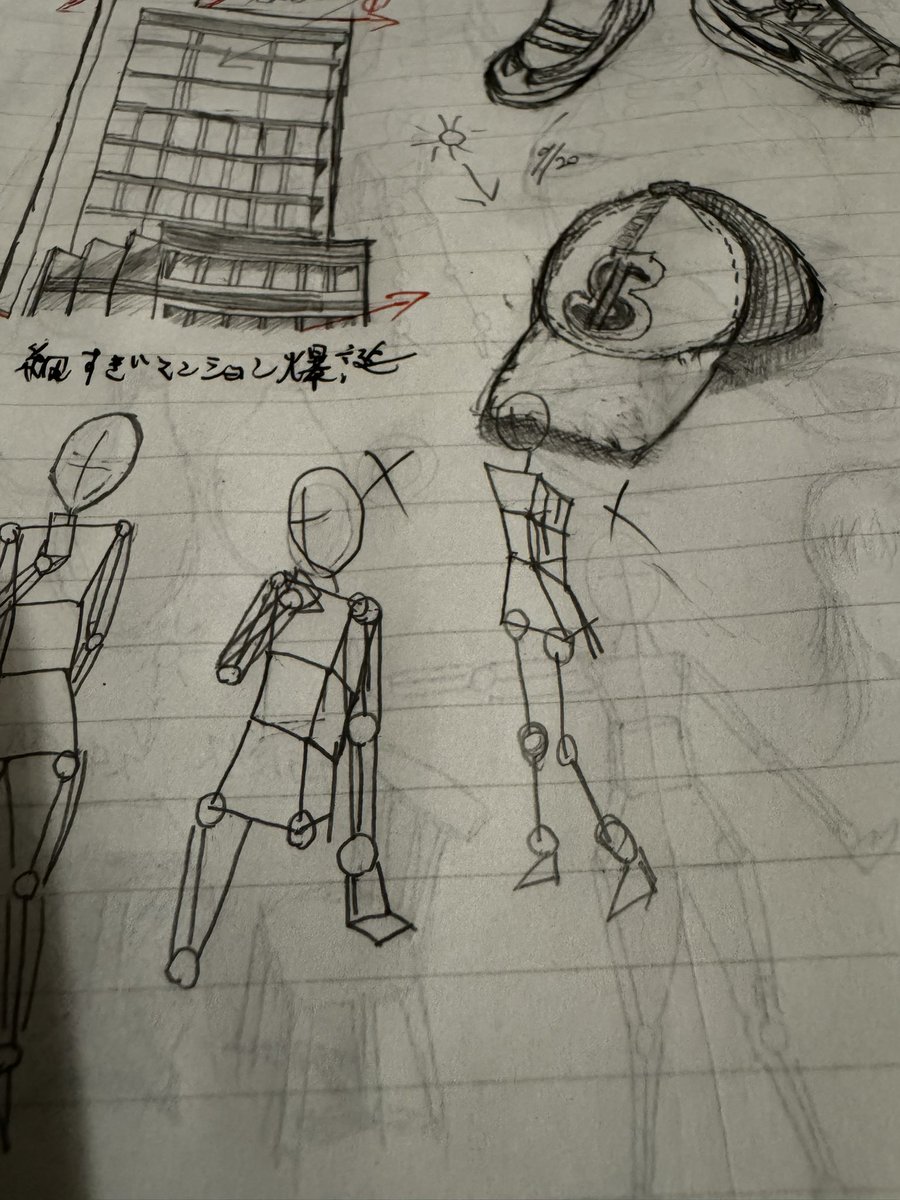 9/20
$
細すぎいマンション爆誕